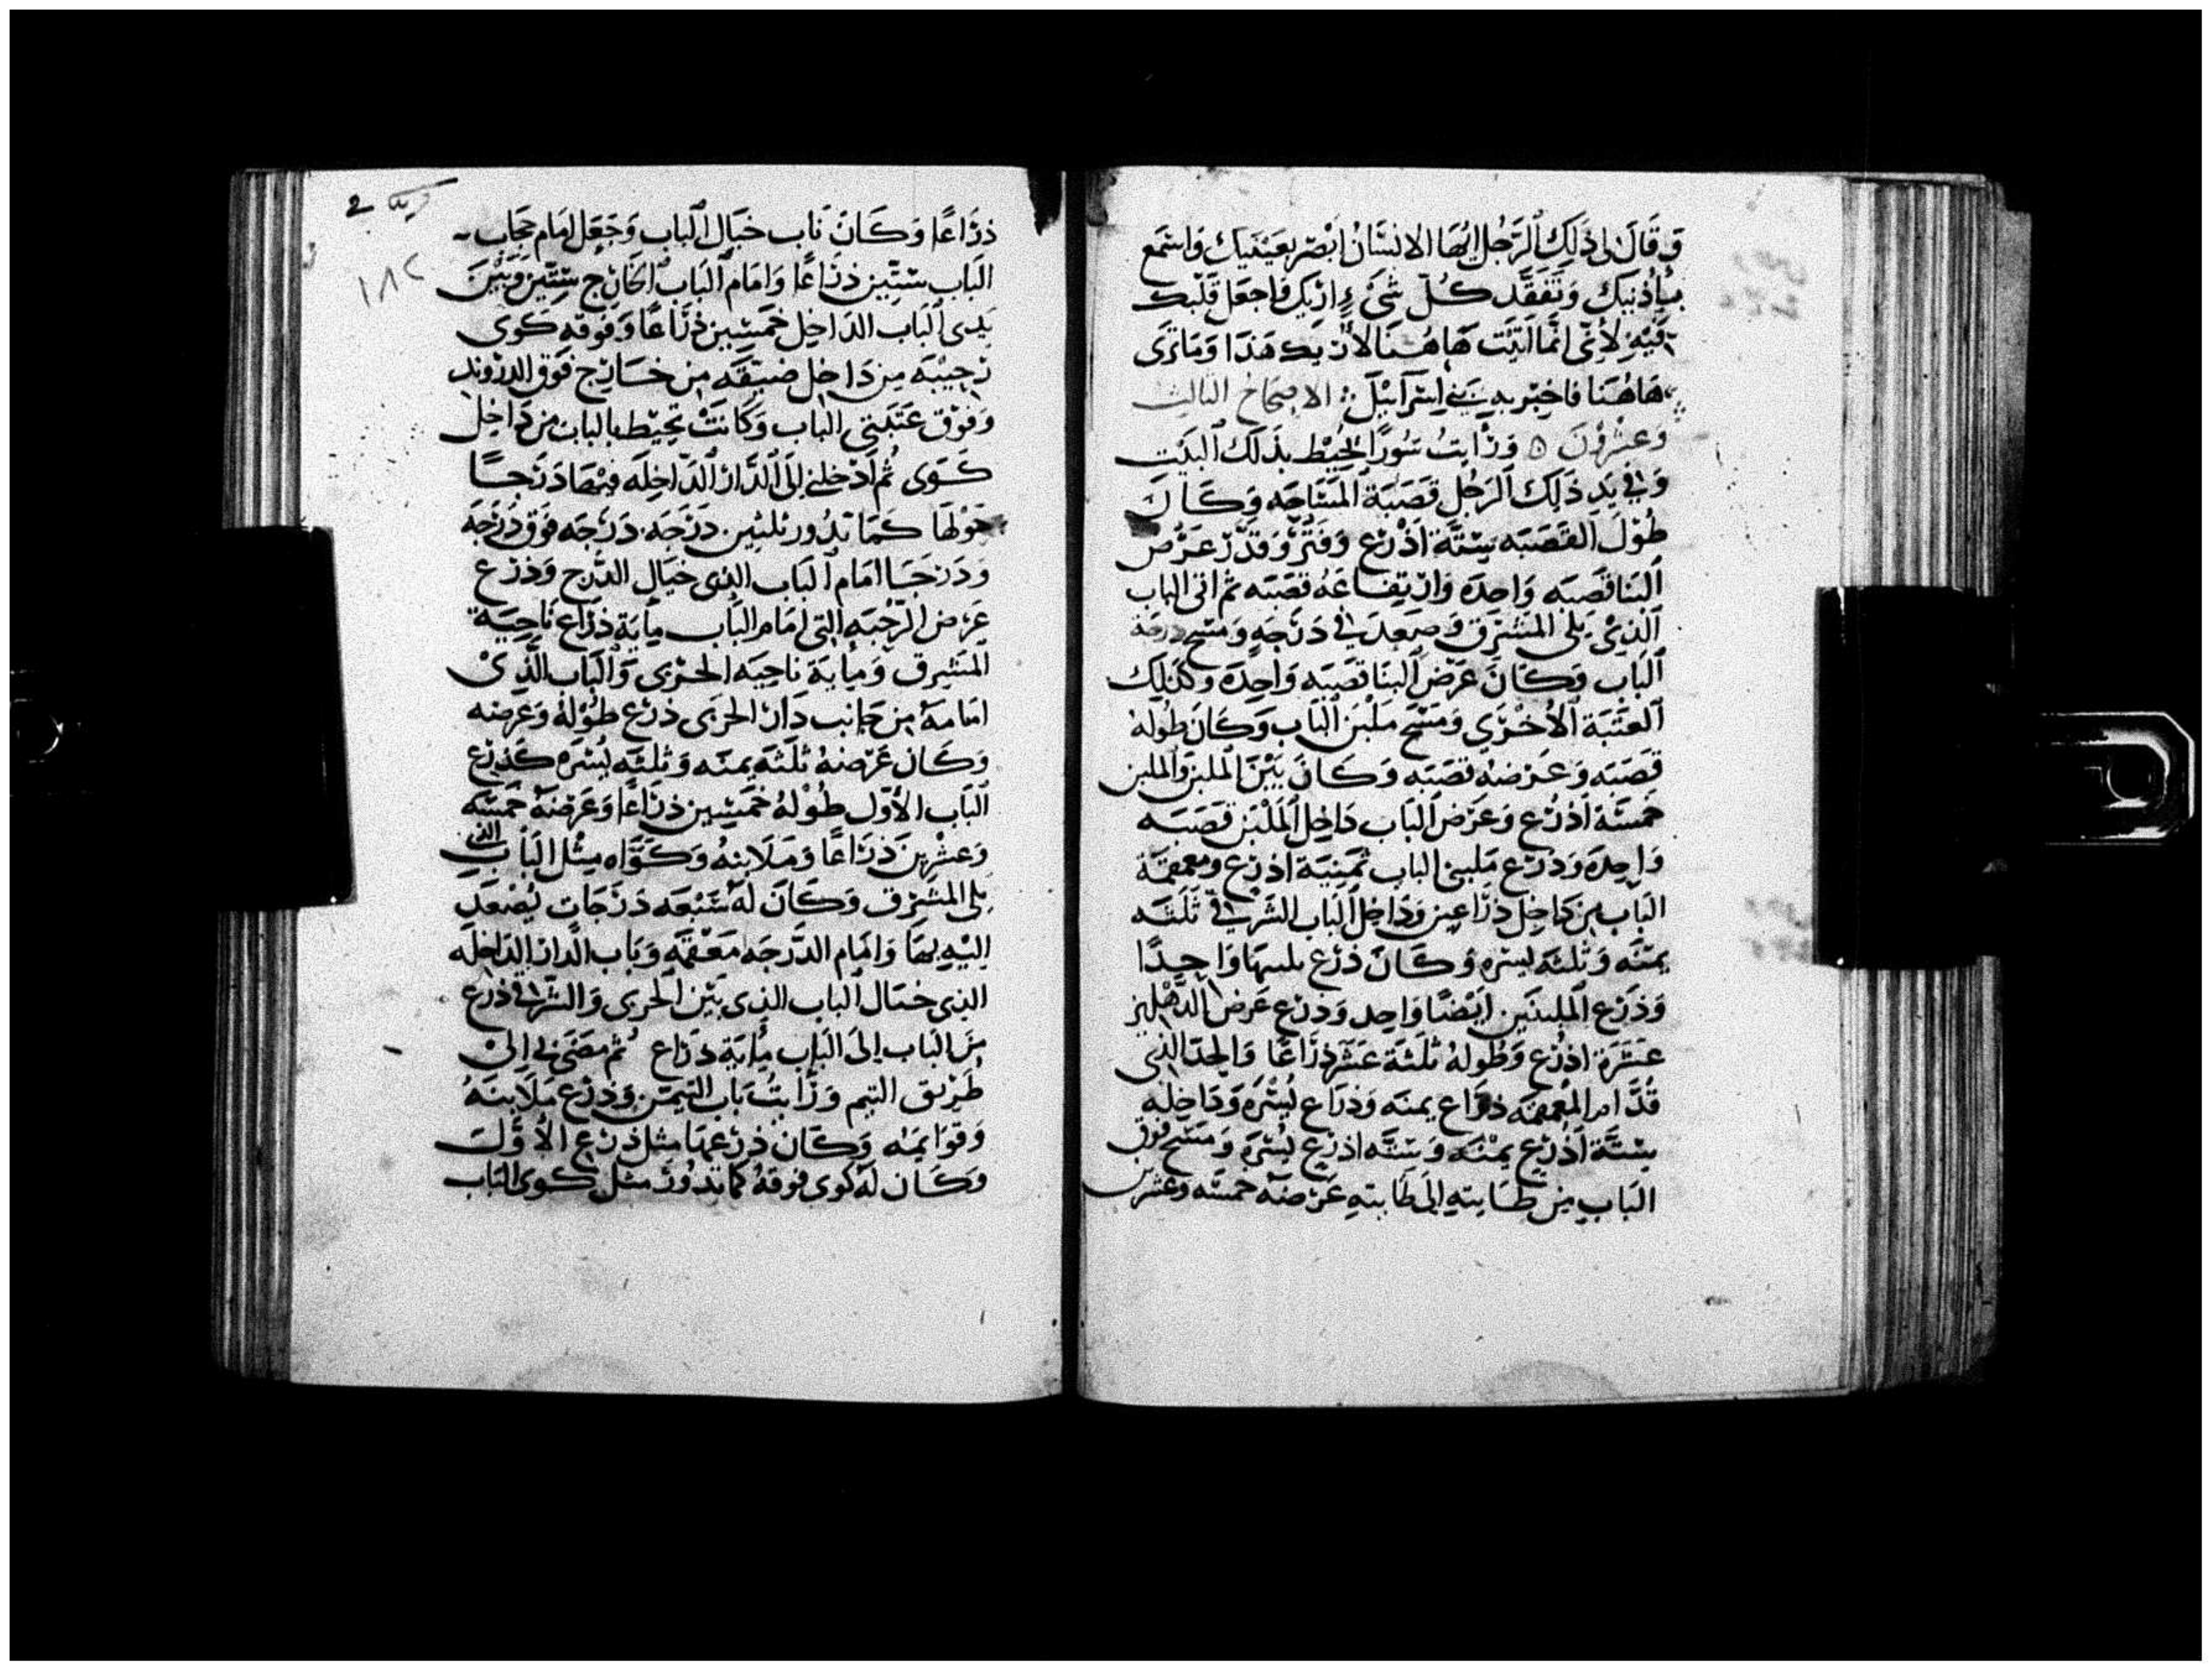 وقال لى ذلك الرجل ايها الانسان ابصر بعينيك واسمع
باذنيك وتفقد كل شىء اريك واجعل قلبك
فيه لانى انما اتيت هاهنا لان يك هذا وما ترى
هاهنا فاخبر به بنى اسرآئيل الاصحاح الثالث
وعشرون ورايت سورًا يحيط بذلك البيت
وفى يد ذلك الرجل قصبة المساحه وكان
طول القصبه ستة اذرع وفتر وقدر عرض
البنا قصبه واحده وارتفاعه قصبه ثم اتى الباب
الذى يلى المشرق وصعد فى درجه ومسح
الباب وكان عرض البنا قصبه واحده وكذلك
العتبة الاخرى ومسح ملبن الباب وكان طوله
قصبه وعرضه قصبه وكان بين الملبن والملبن
خمسة اذرع وعرض الباب داخل الملبن قصبه
واحده وذرع ملبنى الباب ثمنية اذرع ومعمقة
الباب من داخل ذراعين وداخل الباب الشرقى ثلثه
يمنه وثلثه يسره وكان ذرع واحدًا
وذرع الملبنين ايضًا واحد وذرع عرض الدهليز
عشرة اذرع وطوله ثلثة عشر ذراعًا والحد الذى
قدام المعمقه ذراع يمنه وذراع يسره وداخله
ستة اذرع يمنه وستة اذرع يسره ومسح فوق
الباب من طابته الى طابته عرضه خمسه وعشرين
١٨٢
ذراعًا وكان ناب خيال الباب وجعل امام حجاب
الباب ستين ذراعًا وامام الباب الخارج ستين وبين
يدى الباب الداخل خمسين ذراعًا وفوقه كوى
رحيبه من داخل ضيقه من خارج فوق الدروند
وفوق عتبتى الباب وكانت تحيط بالباب من داخل
كوى ثم ادخلنى الى الدار الداخله فيها درجًا
حولها كما تدور ثلثين درجه درجه فوق درجه
ودرجا امام الباب الذى خيال الدرج وذرع
عرض الرحبه التى امام الباب ماية ذراع ناحية
المشرق وماية ناحيه الحربى والباب الذى
امامه من جانب دار الحربى ذرع طوله وعرضه
وكان عرضه ثلثه يمنه وثلثه يسره كذرع
الباب الاول طوله خمسين ذراعًا وعرضه خمسه
وعشرين ذراعًا وملابنه وكواه مثل الباب الذى
يلى المشرق وكان له سبعه درجات يصعد
اليه بها وامام الدرجه معمقه وباب الدار الداخله
الذى خيال الباب الذى بين الحربى والشرقى ذرع
من الباب الى الباب ماية ذراع ثم مضى بى الى
طريق التيم ورايت باب التيمن وذرع ملابنه
وقوايمه وكان ذرعها مثل ذرع الاول
وكان له كوى فوقه كما تدور مثل كوى الباب